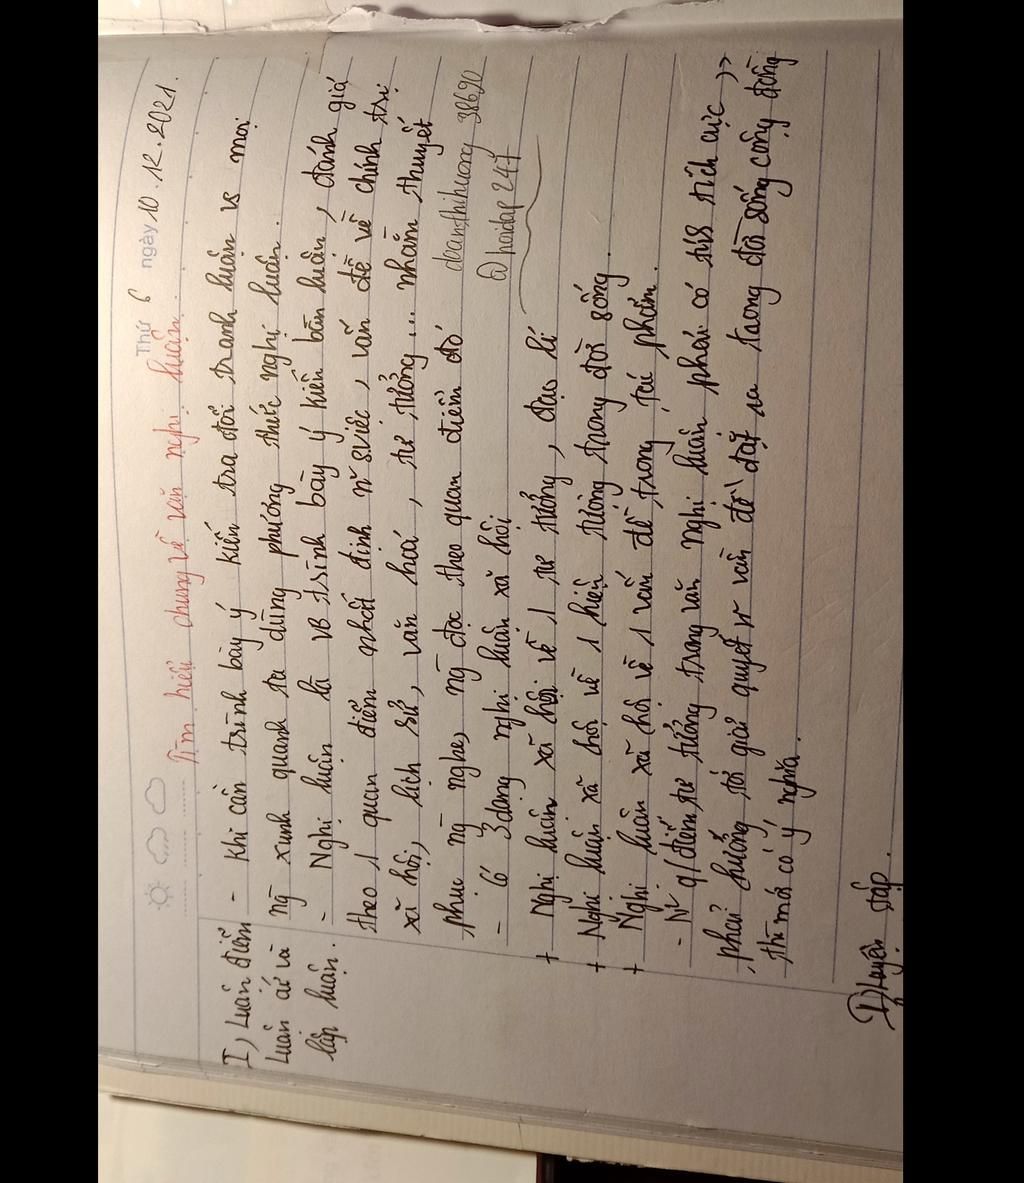 Thứ 6 ngày 10.12.2021.
Tìm hiểu chung về văn nghị luận.
I, Luận điểm
luận cứ và
lập luận.
- Khi cần trình bày ý kiến tra đổi tranh luận vs mọi
ng xung quanh ta dùng phương thức nghị luận.
- Nghị luận là vb trình bày ý kiến bàn luận, đánh giá
theo 1 quan điểm nhất định n~ sviệc, vấn đề về chính trị
xã hội, lịch sử, văn hoá, tư tưởng... nhằm thuyết
phục ng nghe, ng đọc theo quan điểm đó
doanthihuong38690
@ hoidap 247
- Có 3 dạng nghị luận xã hội
+ Nghị luận xã hội về 1 tư tưởng, đạo lí
+ Nghị luận xã hội về 1 hiện tượng trong đời sống.
+ Nghị luận xã hội về 1 vấn đề trong tác phẩm.
- N~ q/điểm tư tưởng trong văn nghị luận phải có tích cực >>
phải hướng tới giải quyết n~ vấn đề đặt ra trong đời sống cộng đồng
thì mới có ý nghĩa.
II, Luyện tập.